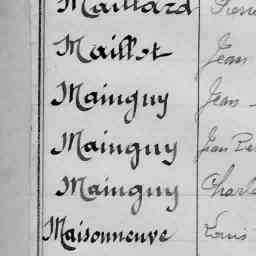 Maillard Pierre
Maillot Jean
Mainguy Jean
Mainguy Jean
Mainguy Charle
Maisonneuve Louis